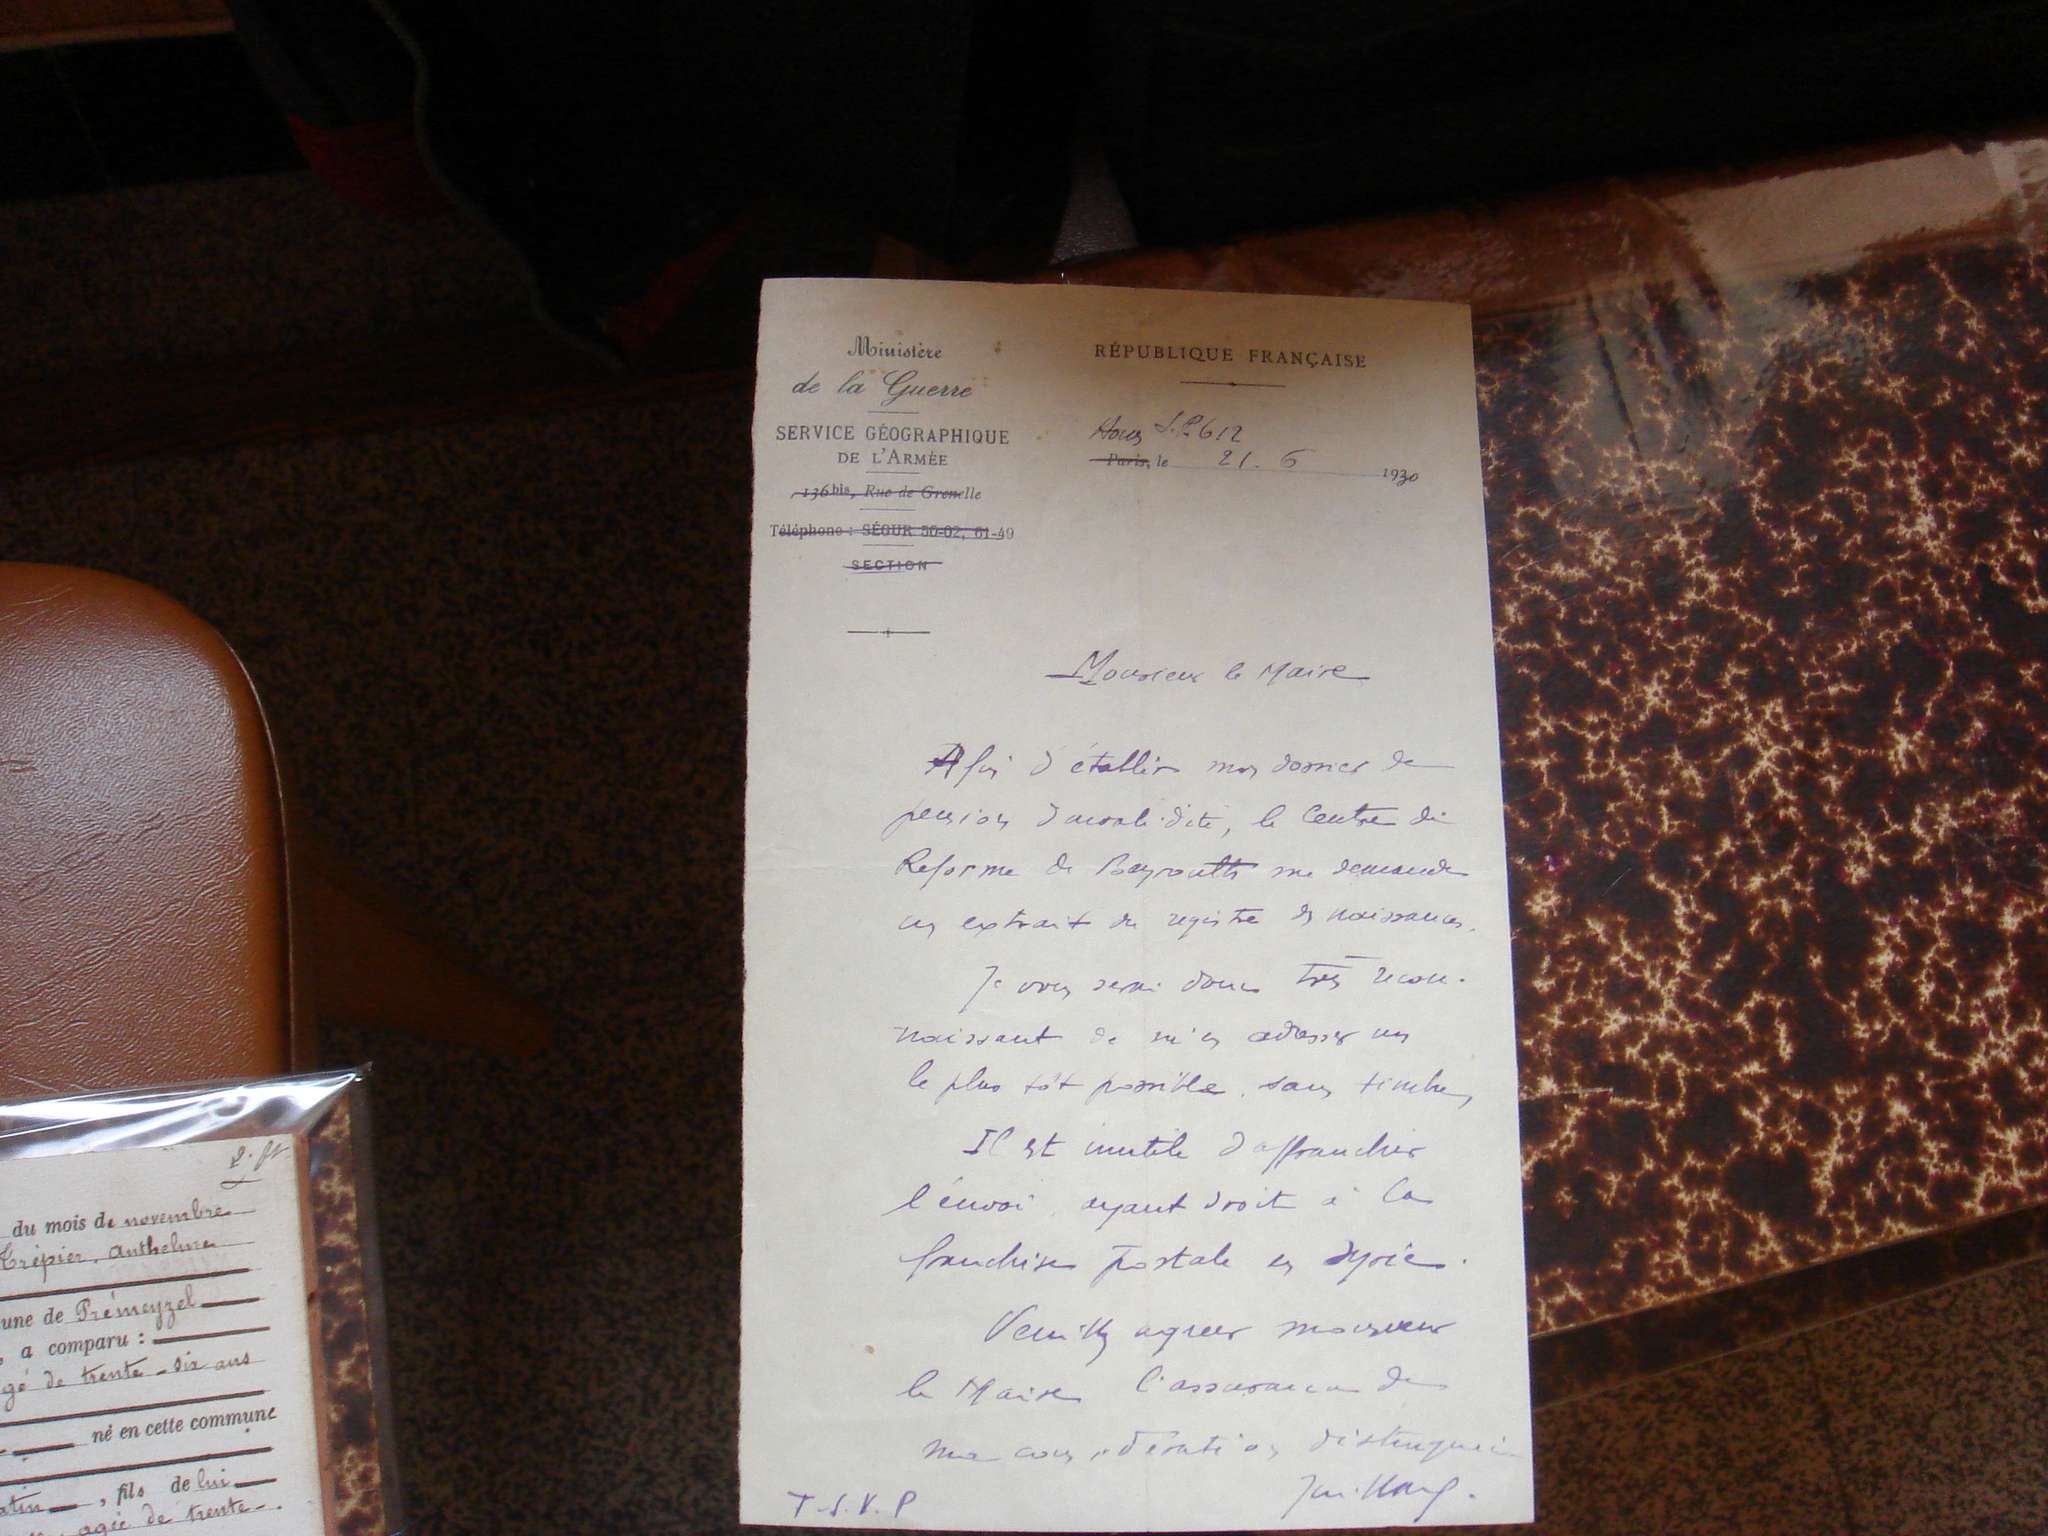 Ministère
de la Guerre
SERVICE GÉOGRAPHIQUE
DE L'ARMÉE
136 bis, Rue de Grenelle
Téléphone : SÉGUR 50-02, 61-49
SECTION
RÉPUBLIQUE FRANÇAISE
S.P. 612
Paris, le 21. 6 1930
Monsieur le Maire
Afin d'établir mon dossier de
pension d'invalidité, le Centre de
Reforme de Beyrouth me demande
un extrait du registre des naissances.
Je vous serai donc très recon-
naissant de m'en adresser un
le plus tôt possible, sans timbre,
Il est inutile d'affranchir
l'envoi, ayant droit à la
franchise postale en Syrie.
Veuillez agreer monsieur
le Maire l'assurance de
ma considération distinguée
T.S.V.P
du mois de novembre
Trépier, Anthelme
une de Prémeyzel
a comparu :
gé de trente-six ans
né en cette commune
, fils de lui
agée de trente-